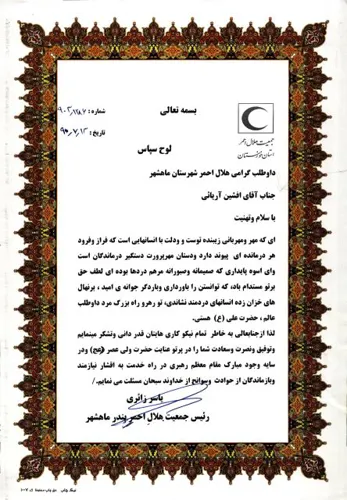 بسمه تعالی
شماره: ۹۰۲/۱۱۸۷
تاریخ: ۹۰/۷/۱۳
جمعیت هلال احمر
استان خوزستان
لوح سپاس
داوطلب گرامی هلال احمر شهرستان ماهشهر
جناب آقای افشین آریائی
با سلام وتهنیت
ای که مهر ومهربانی زیبنده توست و ودلت با انسانهایی است که فراز وفرود
هر درمانده ای پیوند دارد ودستان مهرپرورت دستگیر درماندگان است
وای اسوه پایداری که صمیمانه وصبورانه مرهم دردها بوده ای لطف حق
برتو مستدام باد، که توانستن را باوردازی وباردگر جوانه ی امید، برنهال
های خزان زده انسانهای دردمند نشاندی، تو رهرو راه بزرگ مرد داوطلب
عالم، حضرت علی (ع) هستی.
لذا ازجنابعالی به خاطر تمام نیکو کاری هایتان قدر دانی وتشکر مینمایم
وتوفیق ونصرت وسعادت شما را در پرتو عنایت حضرت ولی عصر (عج) ودر
سایه وجود مبارک مقام معظم رهبری در راه خدمت به اقشار نیازمند
وبازماندگان از حوادث وسوانح از خداوند سبحان مسئلت می نمایم./
یاسر زائری
رئیس جمعیت هلال احمر بندر ماهشهر